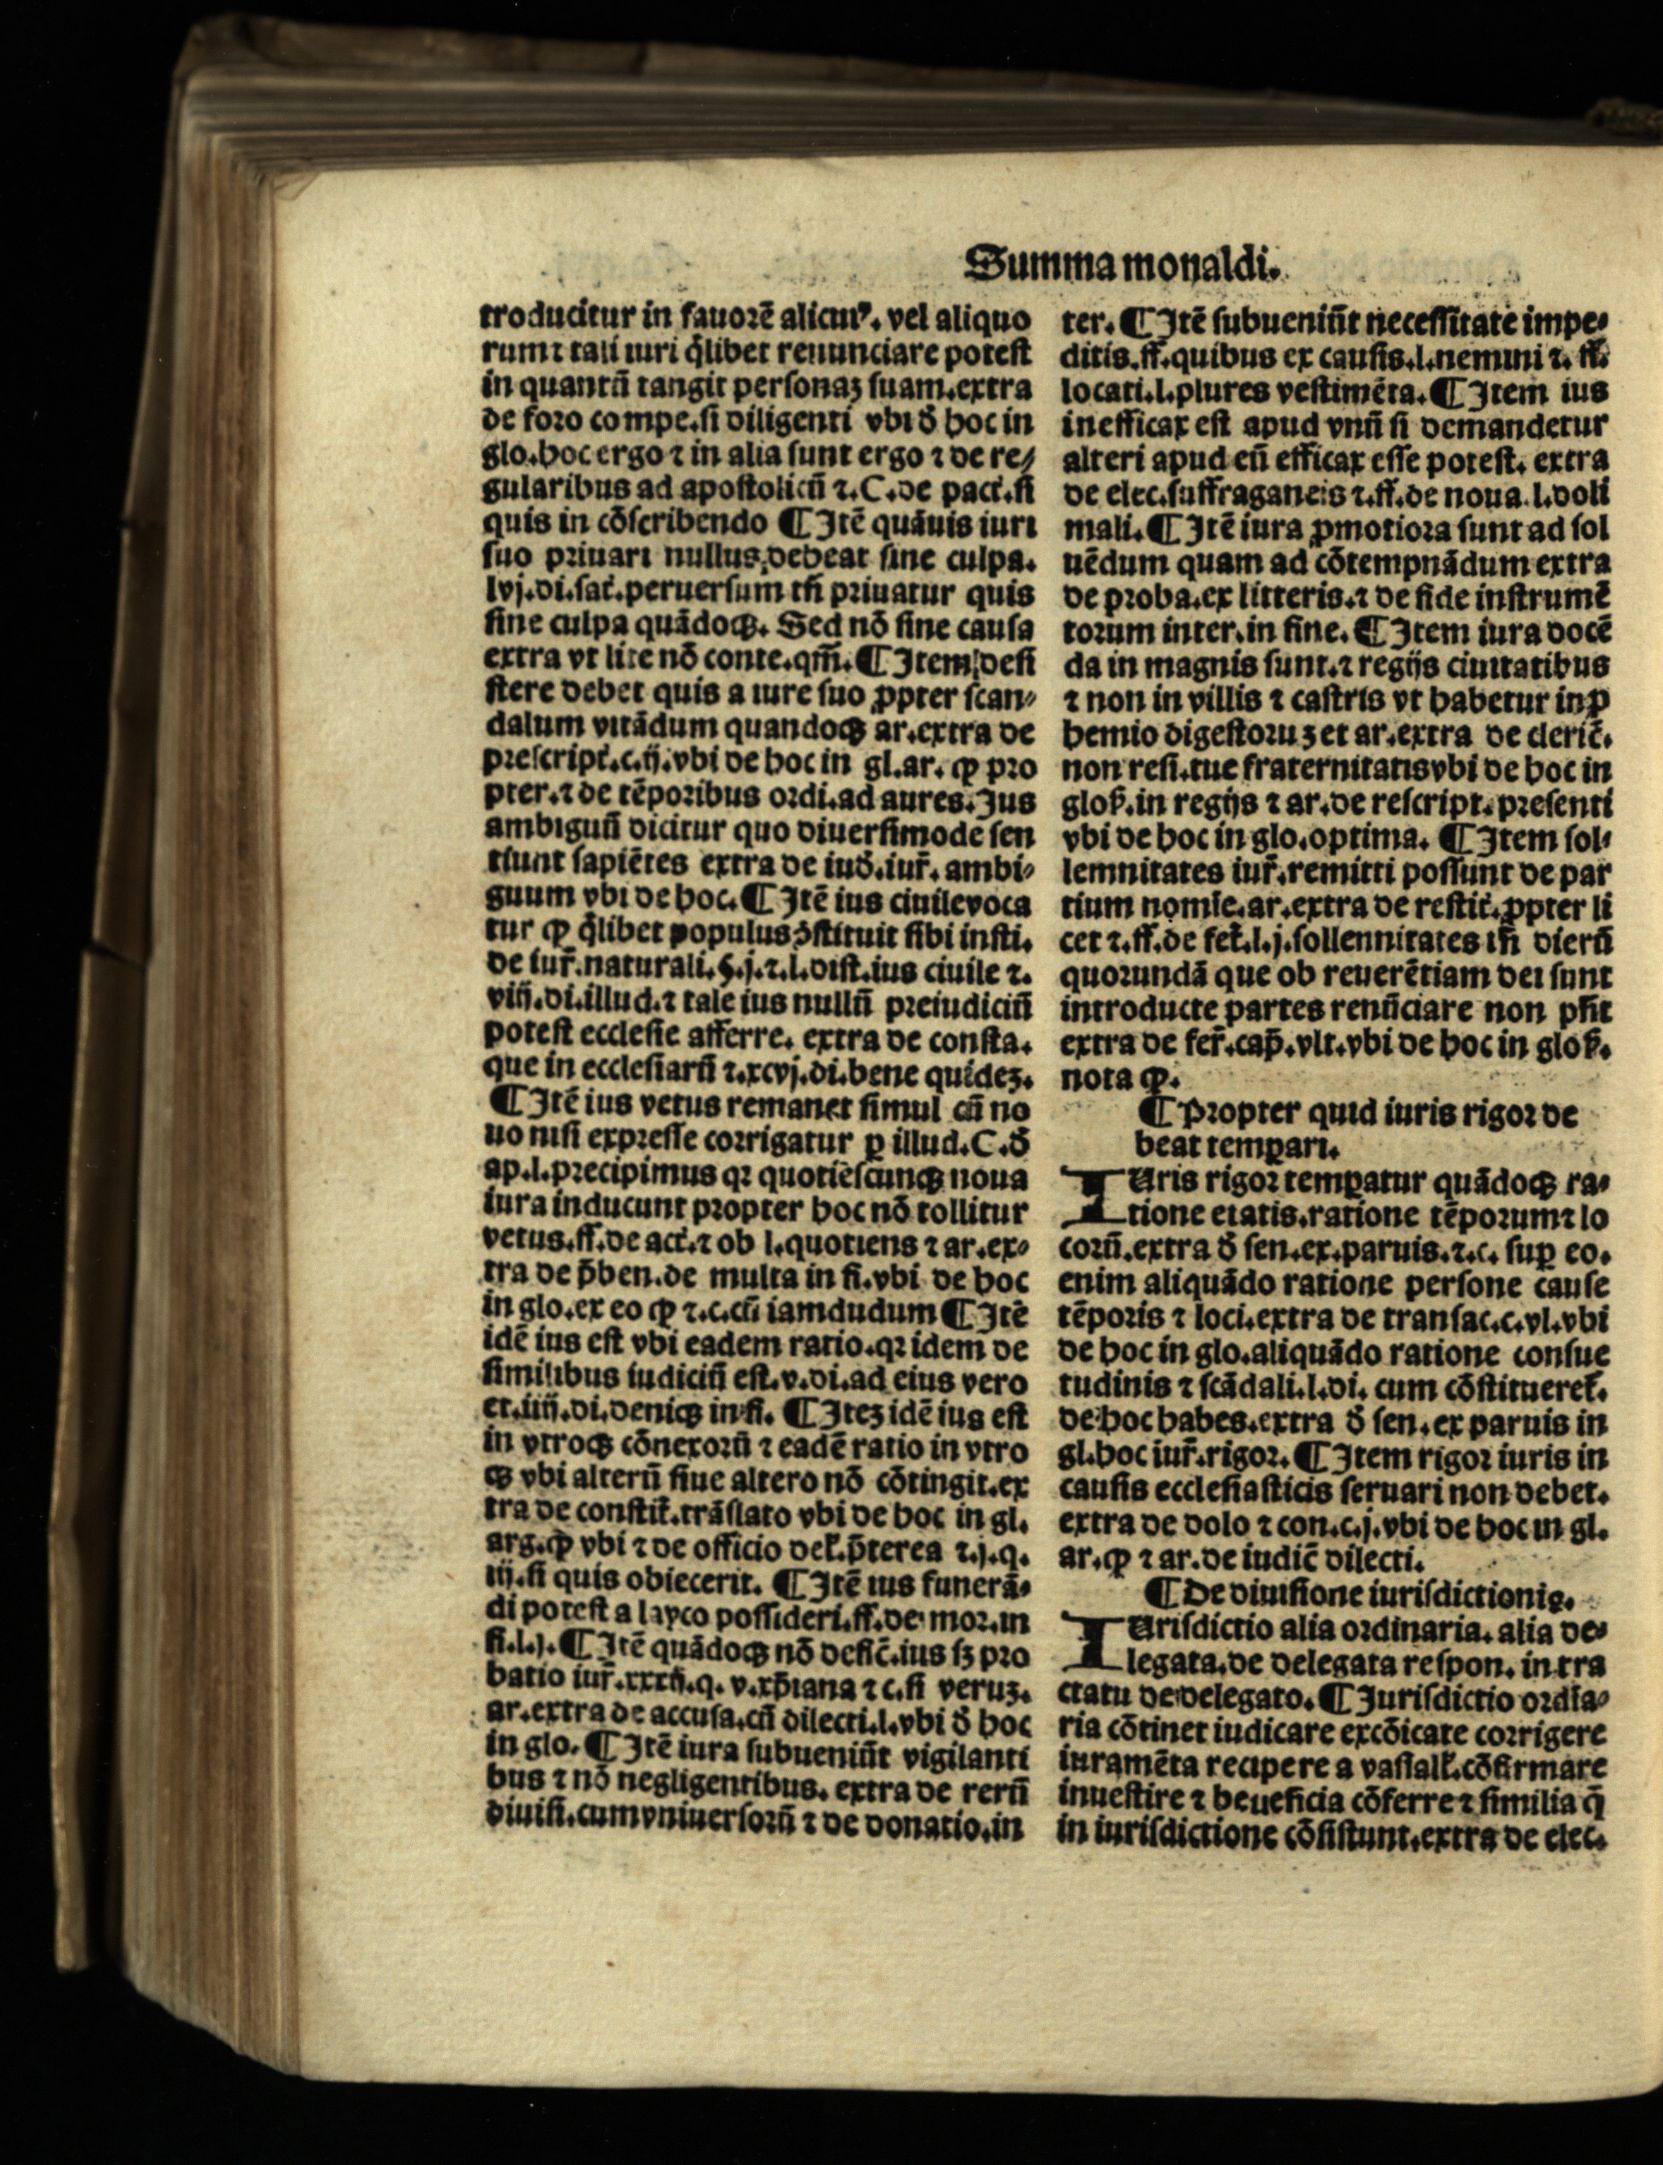 Summa monaldi.
troducitur in fauorē alicuiꝰ. vel aliquo
rum ⁊ tali iuri q̄libet renunciare potest
in quantū tangit personaȝ suam. extra
de foro compe. si diligenti vbi ð hoc in
glo. hoc ergo ⁊ in alia sunt ergo ⁊ de re⸗
gularibus ad apostolicū ⁊. C. de pact̄. si
quis in cōscribendo ¶ Itē quāuis iuri
suo priuari nullus debeat sine culpa.
lvj. di. sat̄. peruersum tn̄ priuatur quis
sine culpa quādoqꝫ. Sed nō sine causa
extra vt lite nō conte. qm̄. ¶ Item desi
stere debet quis a iure suo ꝓpter scan⸗
dalum vitādum quandoqꝫ ar. extra de
prescript̄. c. ij. vbi de hoc in gl. ar. ꝙ pro
pter. ⁊ de tēporibus ordi. ad aures. Jus
ambiguū dicitur quo diuersimode sen
tiunt sapiētes extra de iuð. iur̄. ambi⸗
guum vbi de hoc. ¶ Itē ius ciuile voca
tur ꝙ q̄libet populus ꝯstituit sibi insti.
de iur̄. naturali. §. j. ⁊. l. dist. ius ciuile ⁊.
viij. di. illud. ⁊ tale ius nullū preiudiciū
potest ecclesie afferre. extra de consta.
que in ecclesiarū ⁊. xcvj. di. bene quideȝ.
¶ Itē ius vetus remanet simul cū no
uo nisi expresse corrigatur ꝑ illud. C. ð
ap. l. precipimus qꝛ quotiēscunqꝫ noua
iura inducunt propter hoc nō tollitur
vetus. ff. de act̄. ⁊ ob l. quotiens ⁊ ar. ex⸗
tra de p̄ben. de multa in fi. vbi de hoc
in glo. ex eo ꝙ ⁊. c. cū iamdudum ¶ Itē
idē ius est vbi eadem ratio. qꝛ idem de
similibus iudiciū est. v. di. ad eius vero
et. iiij. di. deniqꝫ in fi. ¶ Iteȝ idē ius est
in vtroqꝫ cōnexorū ⁊ eadē ratio in vtro
qꝫ vbi alterū siue altero nō cōtingit. ex
tra de constit̄. trāslato vbi de hoc in gl.
arg. ꝙ vbi ⁊ de officio del̄. p̄terea ⁊. j. q.
iij. si quis obiecerit. ¶ Itē ius funerā⸗
di potest a layco possideri. ff. de mor. in
fi. l. j. ¶ Itē quādoqꝫ nō defic̄. ius sꝫ pro
batio iur̄. xxxij. q. v. xp̄iana ⁊ c. si veruȝ.
ar. extra de accusa. cū dilecti. l. vbi ð hoc
in glo. ¶ Itē iura subueniūt vigilanti
bus ⁊ nō negligentibus. extra de rerū
diuisi. cum vniuersorū ⁊ de donatio. in
ter. ¶ Itē subueniūt necessitate impe⸗
ditis. ff. quibus ex causis. l. nemini ⁊. ff.
locati. l. plures vestimēta. ¶ Item ius
inefficax est apud vnū si demandetur
alteri apud eū efficax esse potest. extra
de elec. suffraganeis ⁊. ff. de noua. l. doli
mali. ¶ Itē iura ꝓmotiora sunt ad sol
uēdum quam ad cōtempnādum extra
de proba. ex litteris. ⁊ de fide instrumē
torum inter. in fine. ¶ Item iura docē
da in magnis sunt. ⁊ regijs ciuitatibus
⁊ non in villis ⁊ castris vt habetur in ꝓ
hemio digestoruȝ et ar. extra de cleric̄.
non resi. tue fraternitatis vbi de hoc in
glos̄. in regijs ⁊ ar. de rescript. presenti
vbi de hoc in glo. optima. ¶ Item sol⸗
lemnitates iur̄. remitti possunt de par
tium nomīe. ar. extra de restit̄. ꝓpter li
cet ⁊. ff. de fer̄. l. j. sollennitates tn̄ dierū
quorundā que ob reuerētiam dei sunt
introducte partes renūciare non pn̄t
extra de fer̄. cap̄. vlt. vbi de hoc in glos̄.
nota ꝙ.
¶ Propter quid iuris rigor de
beat temꝑari.
IUris rigor temꝑatur quādoqꝫ ra⸗
tione etatis. ratione tēporum ⁊ lo
corū. extra ð sen. ex. paruis. ⁊. c. suꝑ eo.
enim aliquādo ratione persone cause
tēporis ⁊ loci. extra de transac. c. vl. vbi
de hoc in glo. aliquādo ratione consue
tudinis ⁊ scādali. l. di. cum cōstitueret̄.
de hoc habes. extra ð sen. ex paruis in
gl. hoc iur̄. rigor. ¶ Item rigor iuris in
causis ecclesiasticis seruari non debet.
extra de dolo ⁊ con. c. j. vbi de hoc in gl.
ar. ꝙ ⁊ ar. de iudic̄ dilecti.
¶ De diuisione iurisdictionis.
IUrisdictio alia ordinaria. alia de⸗
legata. de delegata respon. in tra
ctatu de delegato. ¶ Jurisdictio ordīa⸗
ria cōtinet iudicare excōicate corrigere
iuramēta recipere a vasall̄. cōfirmare
inuestire ⁊ beueficia cōferre ⁊ similia q̄
in iurisdictione cōsistunt. extra de elec.